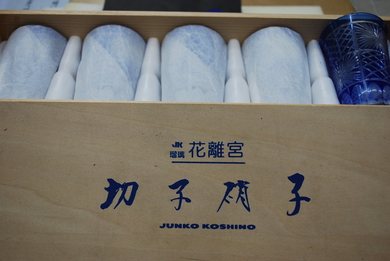 JK
瑠璃 花離宮
切子硝子
JUNKO KOSHINO